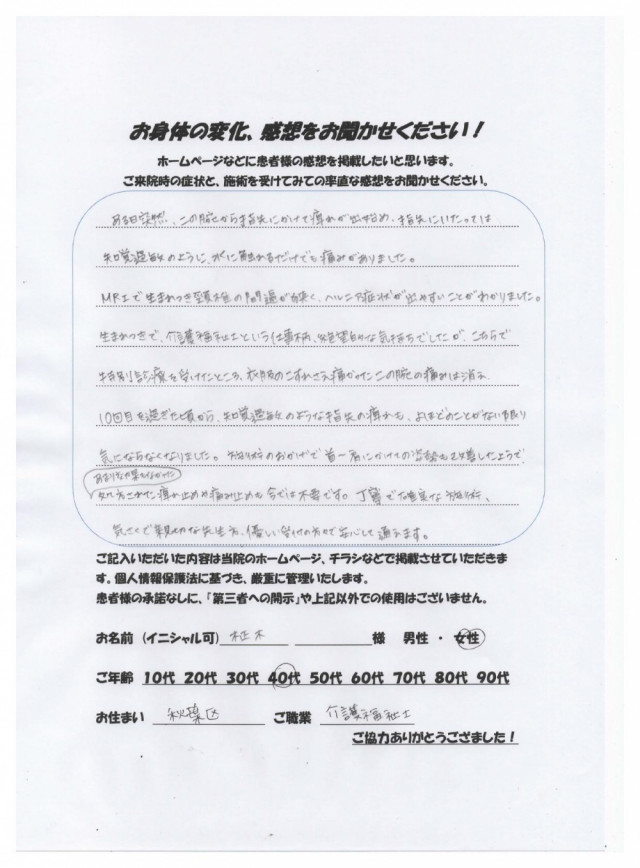 お身体の変化、感想をお聞かせください！
ホームページなどに患者様の感想を掲載したいと思います。
ご来院時の症状と、施術を受けてみての率直な感想をお聞かせください。
ある日突然、二の腕から指先にかけて痺れが出始め、指先にいたっては
知覚過敏のように、水に触れるだけでも痛みがありました。
MRIで生まれつき頚椎の間隔が狭く、ヘルニア症状が出やすいことがわかりました。
生まれつきで、介護福祉士という仕事柄、絶望的な気持ちでしたが、こちらで
特別診療を受けたところ、衣服のこすれさえ痛かった二の腕の痛みは消え
10回目を過ぎた頃から、知覚過敏のような指先の痺れも、よほどのことがない限り
気にならなくなりました。施術のおかげで首〜肩にかけての姿勢も改善したようで、
あまり効果もなかった
処方された痺れ止めや痛み止めも今では不要です。丁寧で確実な施術、
気さくで親しみな先生方、優しい受付の方で安心して通えます。
ご記入いただいた内容は当院のホームページ、チラシなどで掲載させていただきま
す。個人情報保護法に基づき、厳重に管理いたします。
患者様の承諾なしに、「第三者への開示」や上記以外での使用はございません。
お名前（イニシャル可） 様 男性 ・ 女性
ご年齢 10代 20代 30代 40代 50代 60代 70代 80代 90代
お住まい 秋葉区 ご職業 介護福祉士
ご協力ありがとうござました！